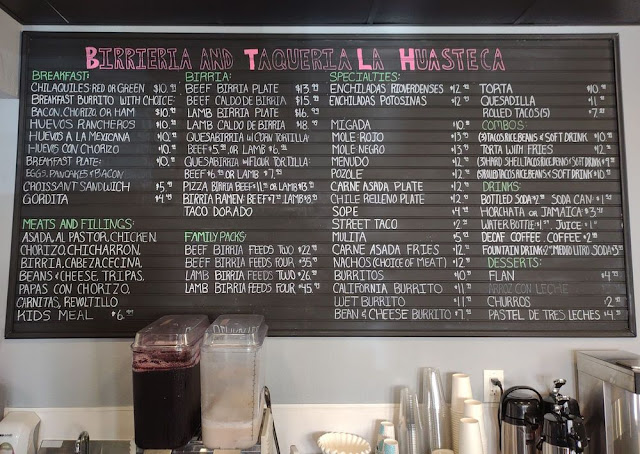 BIRRIERIA AND TAQUERIA LA HUASTECA
BREAKFAST:
CHILAQUILES: RED OR GREEN $10.
BREAKFAST BURRITO WITH CHOICE:
BACON, CHORIZO, OR HAM $10.
HUEVOS RANCHEROS $10.
HUEVOS A LA MEXICANA $10.
HUEVOS CON CHORIZO $10.
BREAKFAST PLATE: $10.
EGGS, PANCAKES & BACON
CROISSANT SANDWICH $5.
GORDITA $4.
MEATS AND FILLINGS:
ASADA, AL PASTOR, CHICKEN,
CHORIZO, CHICHARRON,
BIRRIA, CABEZA, CECINA,
BEANS & CHEESE, TRIPAS,
PAPAS CON CHORIZO,
CARNITAS, REVOLTILLO
KIDS MEAL $6.
BIRRIA:
BEEF BIRRIA PLATE $13.
BEEF CALDO DE BIRRIA $15.
LAMB BIRRIA PLATE $16.
LAMB CALDO DE BIRRIA $18.
QUESABIRRIA W/ CORN TORTILLA:
BEEF $5. OR LAMB $6.
QUESABIRRIA W/ FLOUR TORTILLA:
BEEF $6. OR LAMB $7.
PIZZA BIRRIA BEEF $11. OR LAMB $13.
BIRRIA RAMEN: BEEF $7. LAMB $8.
TACO DORADO
FAMILY PACKS:
BEEF BIRRIA FEEDS TWO $22.
BEEF BIRRIA FEEDS FOUR $35.
LAMB BIRRIA FEEDS TWO $26.
LAMB BIRRIA FEEDS FOUR $45.
SPECIALTIES:
ENCHILADAS RIOVERDENSES $12.
ENCHILADAS POTOSINAS $12.
MIGADA $10.
MOLE ROJO $13.
MOLE NEGRO $13.
MENUDO $12.
POZOLE $12.
CARNE ASADA PLATE $12.
CHILE RELLENO PLATE $12.
SOPE $4.
STREET TACO $2.
MULITA $5.
CARNE ASADA FRIES $12.
NACHOS (CHOICE OF MEAT) $12.
BURRITOS $10.
CALIFORNIA BURRITO $11.
WET BURRITO $11.
BEAN & CHEESE BURRITO $7.
TORTA $10.
QUESADILLA $11.
ROLLED TACOS (5) $7.
COMBOS:
TACOS, RICE, BEANS & SOFT DRINK $10.
TORTA WITH FRIES $12.
(3) HARD SHELL TACOS, RICE, BEANS & SOFT DRINK
ROLLED TACOS, RICE, BEANS & SOFT DRINK $10.
DRINKS:
BOTTLED SODA $2. SODA CAN: $1.
HORCHATA OR JAMAICA: $3.
WATER BOTTLE: JUICE $1.
DECAF COFFEE, COFFEE $2.
FOUNTAIN DRINK: $2. MEDIO LITRO SODA $3.
DESSERTS:
FLAN $4.
ARROZ CON LECHE
CHURROS $2.
PASTEL DE TRES LECHES $4.